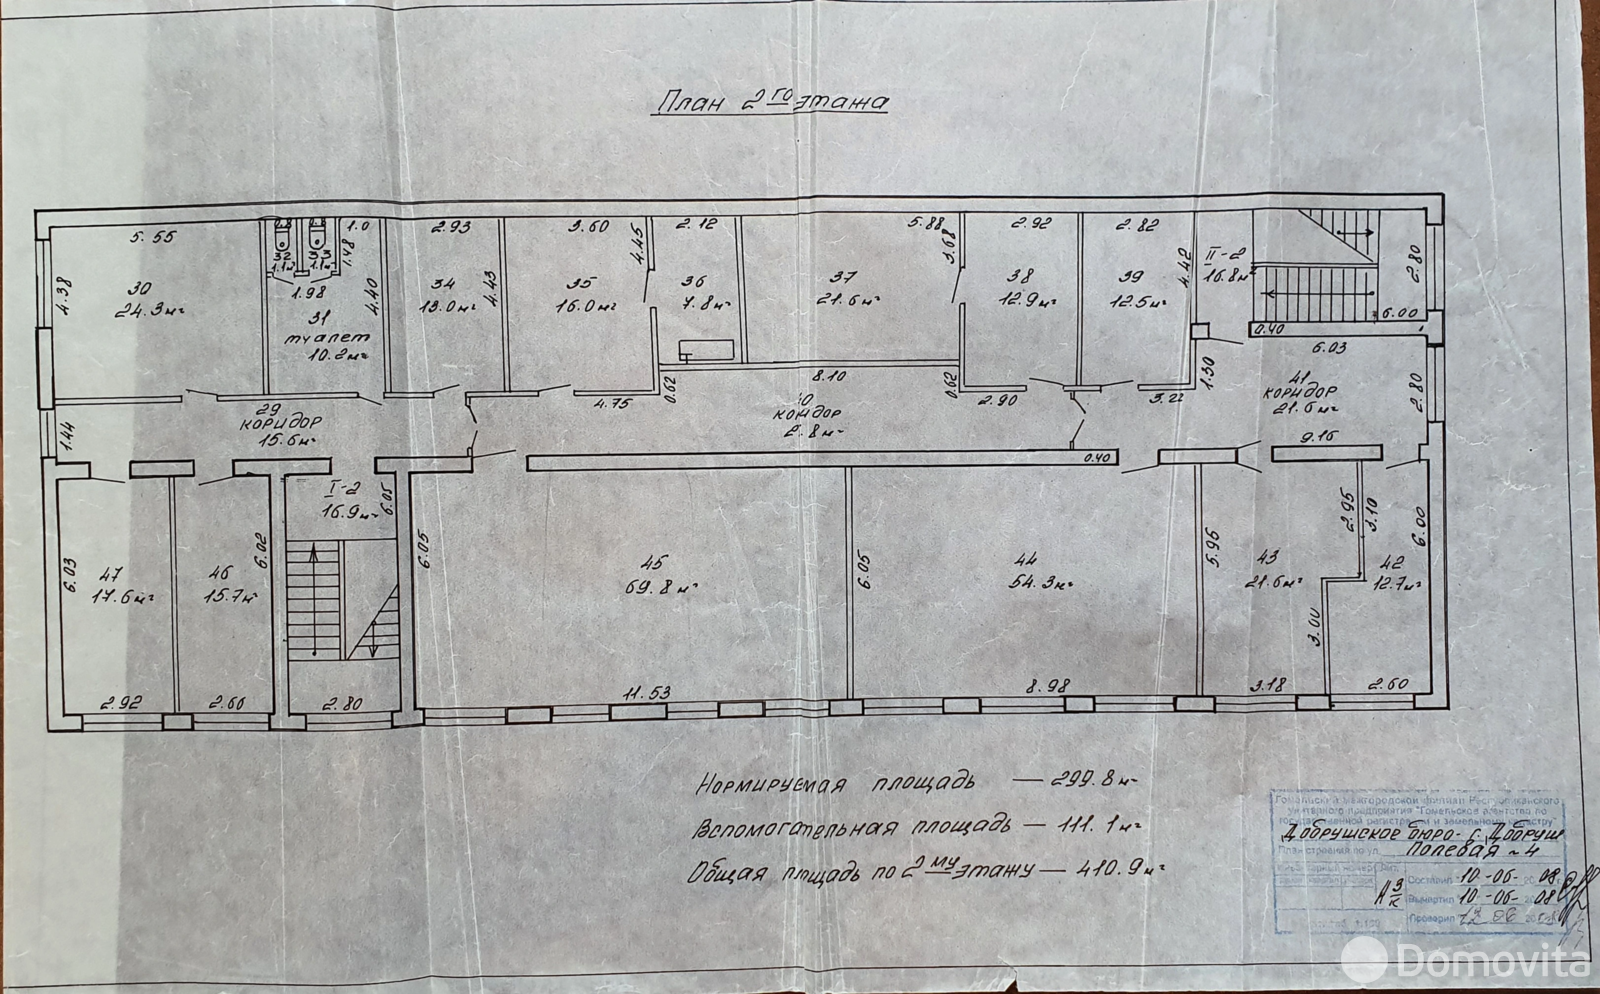 План 2го этажа
5.55
0.8
0.8
1.0
2.93
3.60
2.12
5.88
2.92
2.82
4.38
30
24.3м²
32
1.1м²
33
1.1м²
1.48
1.98
31
туалет
10.2м²
4.40
34
13.0м²
4.43
35
16.0м²
4.45
36
7.8м²
37
21.6м²
3.68
38
12.9м²
39
12.5м²
4.42
II-2
16.8м²
2.80
6.00
0.40
6.03
1.44
29
коридор
15.6м²
4.75
0.62
8.10
коридор
0.62
2.90
3.22
1.30
41
коридор
21.6м²
2.80
9.16
0.40
I-2
16.9м²
6.05
6.03
47
17.6м²
46
15.7м²
6.02
6.05
45
69.8м²
6.05
44
54.3м²
5.95
43
21.6м²
2.95
3.10
42
12.7м²
6.00
3.00
2.92
2.66
2.80
11.53
8.98
3.18
2.60
Нормируемая площадь — 299.8м²
Вспомогательная площадь — 111.1м²
Общая площадь по 2му этажу — 410.9м²
Гомельский межгородской филиал Республиканского
унитарного предприятия "Гомельское агентство по
государственной регистрации и земельному кадастру"
Добрушское бюро г. Добруш
План строения по ул. Полевая 4
Составил 10-06- 2008
Вычертил 10-06- 2008
Проверил
Domovita